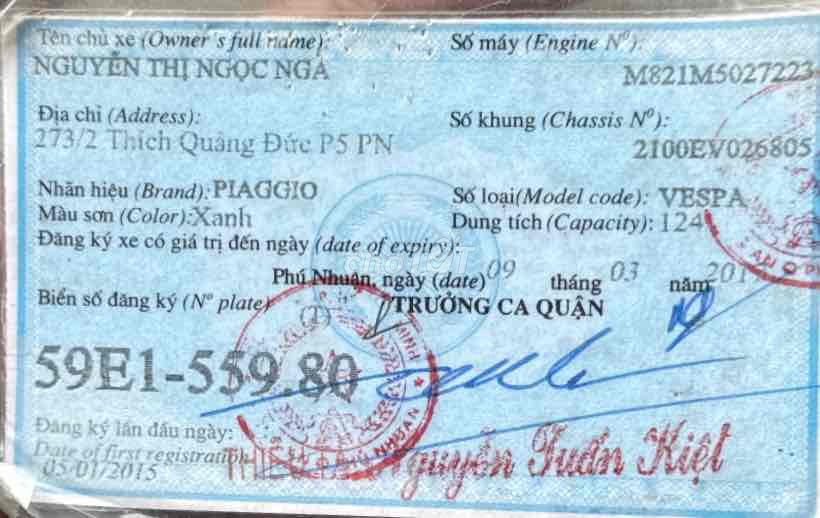 Tên chủ xe (Owner's full name):
NGUYỄN THỊ NGỌC NGA
Số máy (Engine Nº):
M821M5027223
Địa chỉ (Address):
273/2 Thích Quảng Đức P5 PN
Số khung (Chassis Nº):
2100EV026805
Nhãn hiệu (Brand): PIAGGIO
Số loại(Model code): VESPA
Màu sơn (Color):Xanh
Dung tích (Capacity): 124
Đăng ký xe có giá trị đến ngày (date of expiry):
chợ TỐT
Phú Nhuận, ngày (date) 09 tháng 03 năm 201
Biển số đăng ký (Nº plate)
TRƯỞNG CA QUẬN
59E1-559.80
Đăng ký lần đầu ngày:
Date of first registration
05/01/2015
Nguyễn Tuấn Kiệt